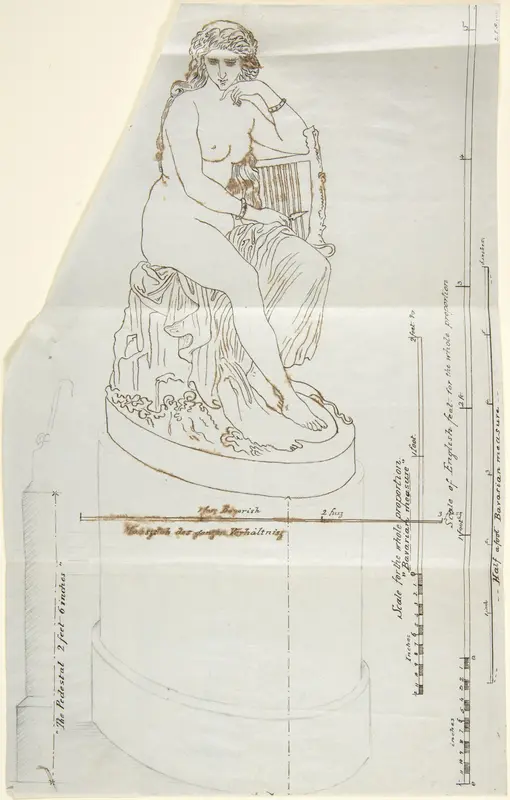 Mas. Bayrish
2 fus
3
Maasstab des ganzen Verhältniss
"The Pedestal 2 feet 6 inches"
Scale for the whole proportion
"Bavarian measure"
Inches
1 foot
2 feet
Scale of English feet for the whole proportion
inches
1 foot
2 ft
3
4
5
Half a foot Bavarian measure